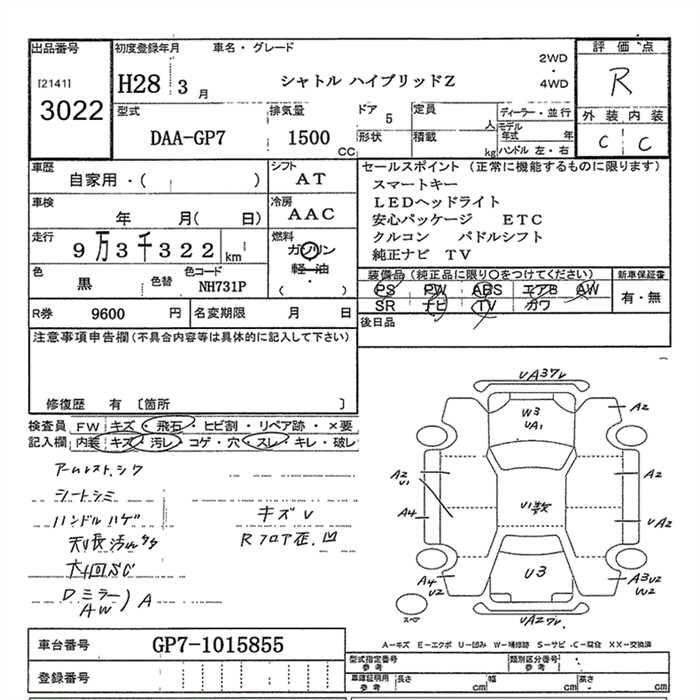 出品番号 初度登録年月 車名・グレード 評価点
[2141] H28 3月 シャトル ハイブリッドZ 2WD・4WD R
3022
型式 排気量 ドア 定員 ディーラー・並行 外装 内装
DAA-GP7 1500 CC 5 人 モデル年式 年 C C
形状 積載 kg ハンドル 左・右
車歴 シフト セールスポイント (正常に機能するものに限ります)
自家用・( ) AT スマートキー
LEDヘッドライト
車検 冷房 安心パッケージ ETC
年 月( 日) AAC クルコン パドルシフト
走行 燃料 純正ナビ TV
9万3千322 km ガソリン
軽・油
( )
色 色替 色コード
黒 NH731P
装備品(純正品に限り○をつけてください) 新車保証書
PS PW ABS エアB AW 有・無
SR ナビ TV カワ
R券 9600 円 名変期限 月 日 後日品
注意事項申告欄(不具合内容等は具体的に記入して下さい)
修復歴 有 〔箇所 〕
検査員 FW キズ・飛石・ヒビ割・リペア跡・×要
記入欄 内装 キズ・汚レ・コゲ・穴・スレ・キレ・破レ
アームレストシワ
シートシミ
ハンドルハゲ キズU
Rフロア歪、凹
Dミラー
AW ) A
W3
UA1
A2
A2
U1
A2
A4
U1数
UA2
A4
U2
U3
A3U2
W2
スペア
A-キズ E-エクボ U-凹み W-補修跡 S-サビ C-腐食 XX-交換済
車台番号 GP7-1015855
型式指定番号 参考 類別区分番号 参考
登録番号
車庫証明用 参考 長さ cm 幅 cm 高さ cm